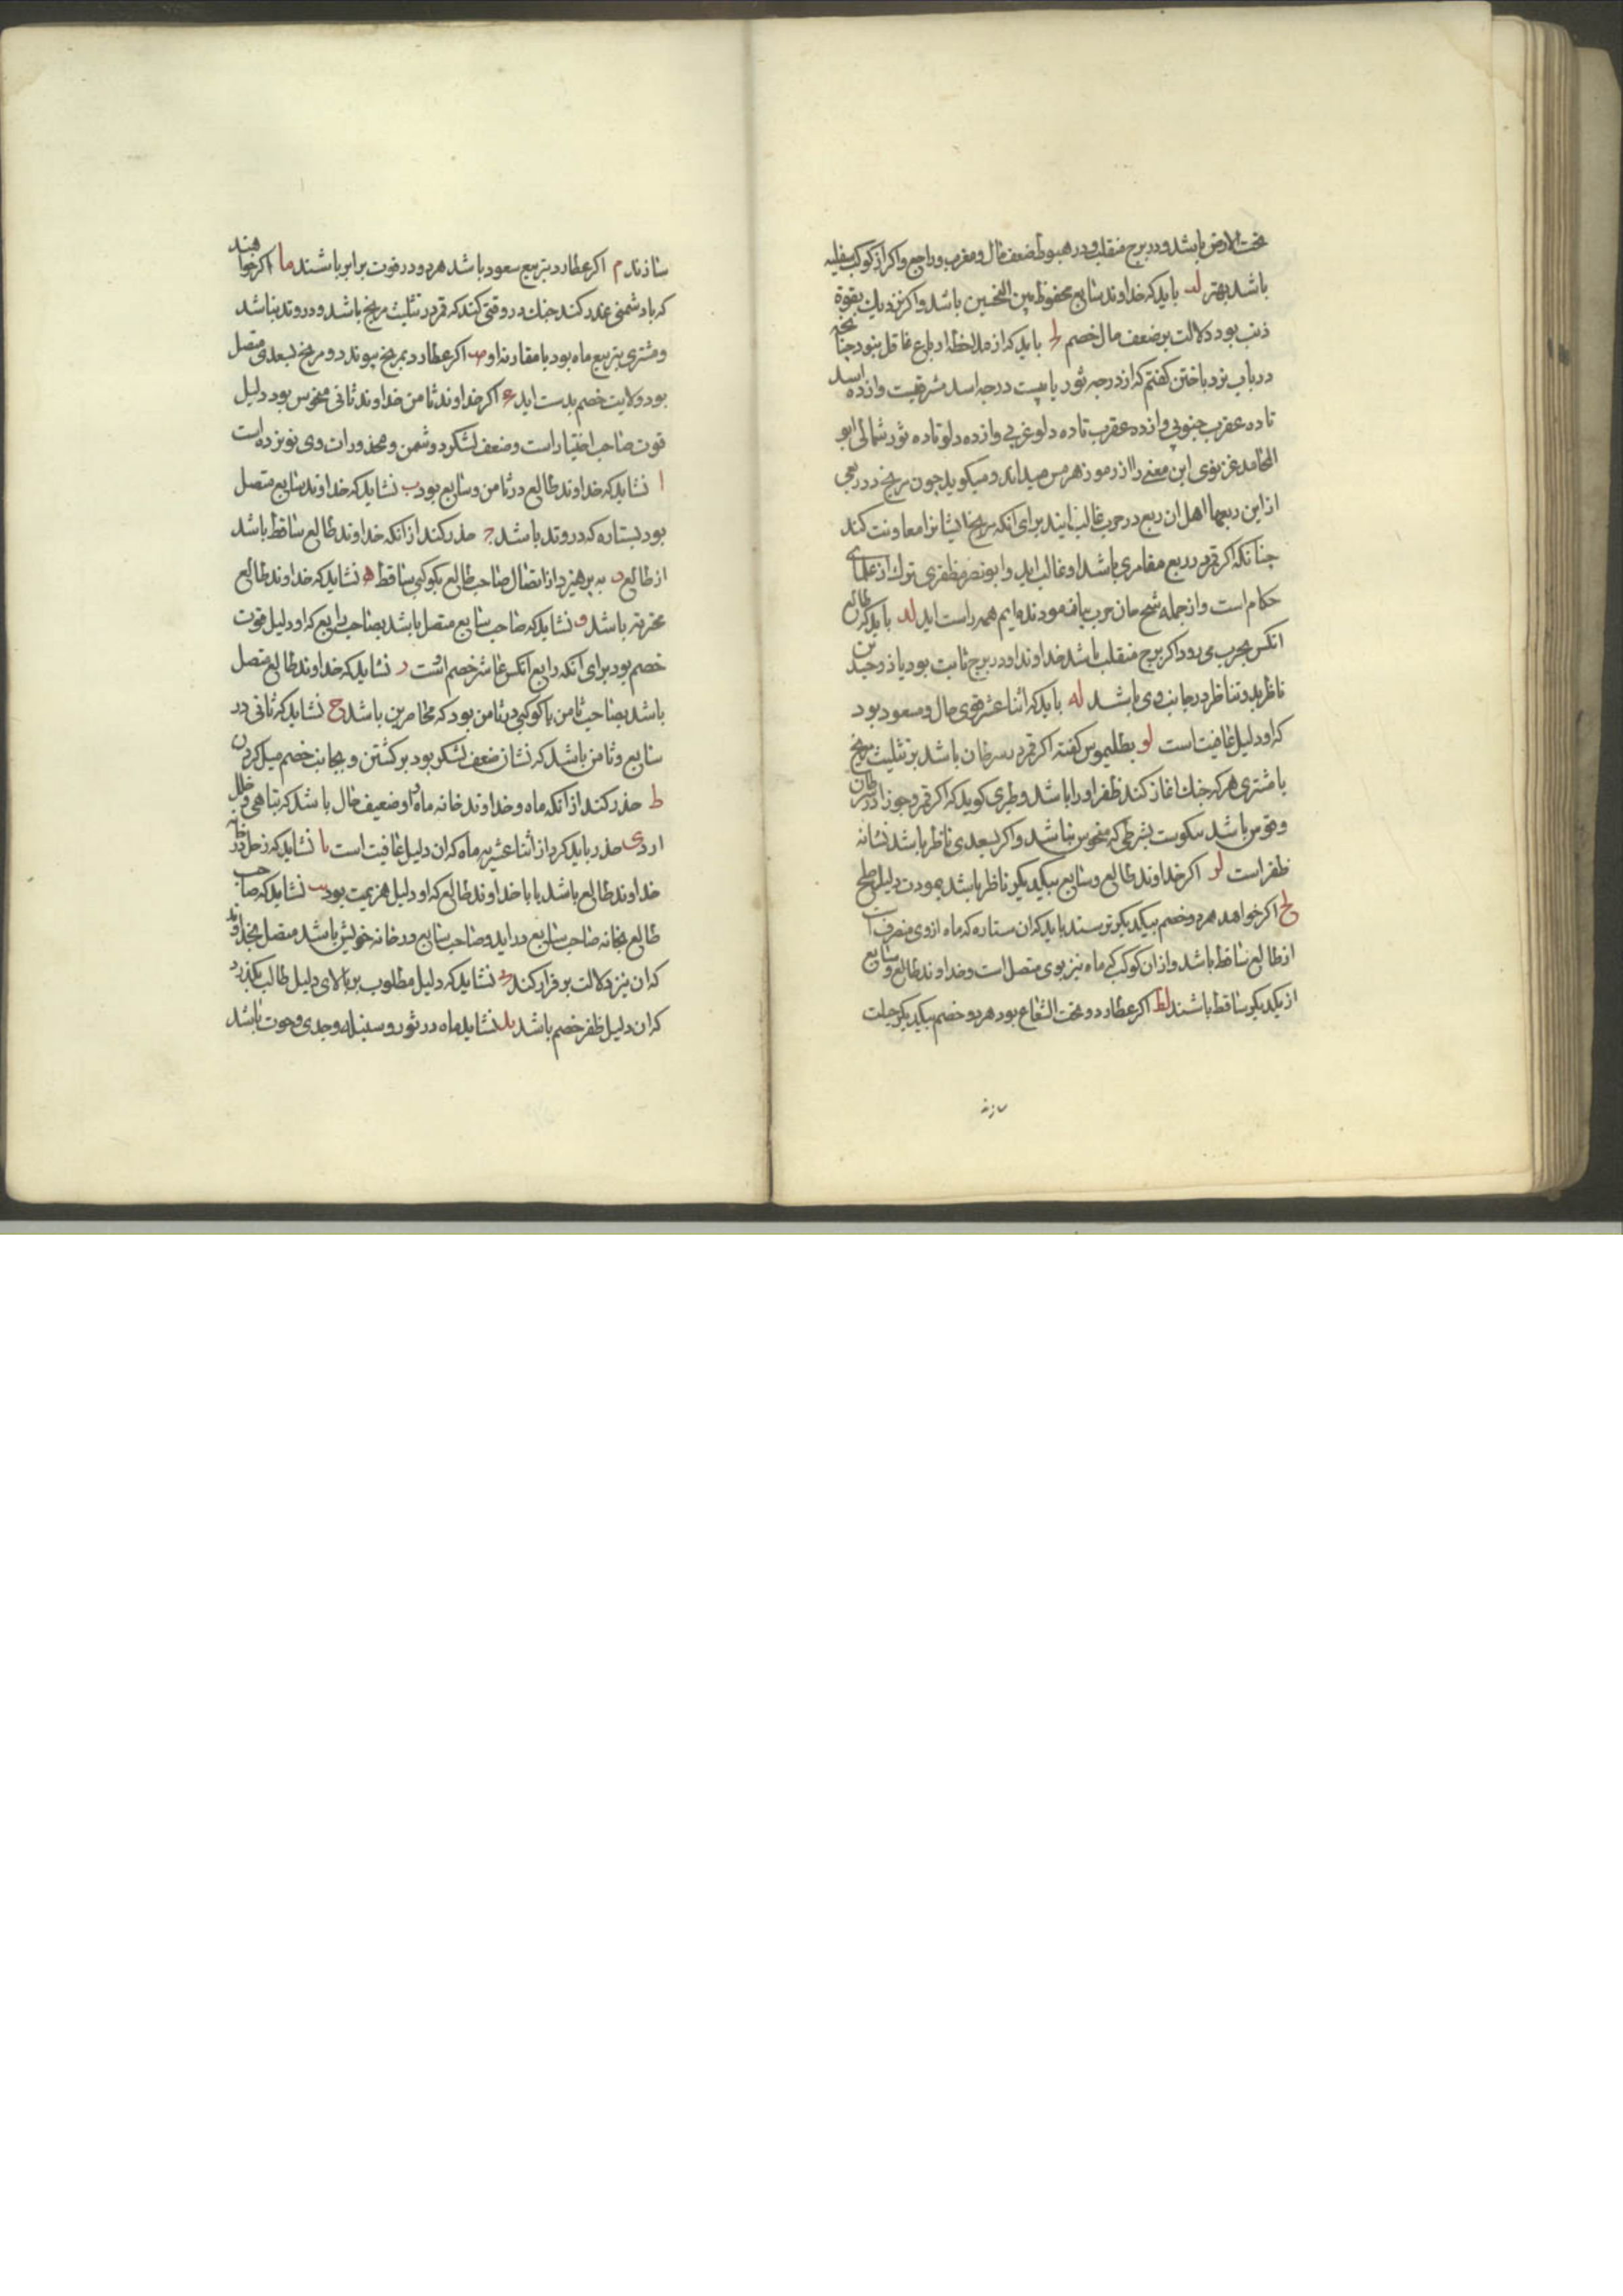 تحت الارض باشد و در برج منقلب و در هبوط ضعف حال و مغرب و راجع واكر از كوكب سفليه
باشد بهتر لب بايد كه خداوند سابع محفوظ بين النحسين باشد واكر نزديك بقوة
ذنب بود دلالت بر ضعف مال خصم لج بايد كه از ملاحظه ارباع غافل نبود جنانچه
در باب نرد باختن كفتم كه از ده درجه ثور يا بيست درجه اسد مشرقيست واز ده اسد
تا ده عقرب جنوبي واز ده عقرب تا ده دلو غربي واز ده دلو تا ده ثور شمالي ابو
المحامد غزنوى اين معنى را از رموز هرمس ميداند و ميكويد جون مريخ در ربعى
از اين ربعها اهل ان ربع در حرب غالب ايند براى انكه مريخ ايشانرا معاونت كند
جنانكه اكر قمر در ربع مقامرى باشد او غالب ايد و ابو نصر مظفرى ترك از علماى
حكام است واز جمله ... همه راست ايد لد بايد كه طالع
انكس بحرب مى رود اكر برج منقلب باشد خداوند او در برج ثابت بود يا ذو جسدين
ناظر بدو تناظر در جانب وى باشد له بايد كه اثنا عشر قوى حال و مسعود بود
كه او دليل عاقبت است لو بطليموس كفته اكر قمر در سرطان باشد بر تثليث مريخ
يا مشترى هر كه جنك اغاز كند ظفر او را باشد و طبرى كويد كه اكر قمر در جوزا و سرطان
و قوس باشد نيكوست بشرطى كه منحوس نباشد واكر بسعدى ناظر باشد نشانه
ظفر است لز اكر خداوند طالع و سابع بيكديكر ناظر باشد بمودت دليل صلح
لح اكر خواهد هر دو خصم بيكديكر نرسند بايد كه ان ستاره كه ماه از وى منصرفست
از طالع ساقط باشد واز ان كوكب كه ماه نيز بوى متصل است و خداوند طالع و سابع
از يكديكر ساقط باشند لط اكر عطارد در تحت الشعاع بود هر دو خصم بيكديكر حيلت
سازند
سازند م اكر عطارد بتربيع سعود باشد هر دو در قوت برابر باشند ما اكر خواهند
كه با دشمنى غدر كند جنك در وقتى كند كه قمر در تثليث مريخ باشد و در وتد نباشد
و مشترى بتربيع ماه بود يا مقارنه او مب اكر عطارد بمريخ پيوندد و مريخ بسعدى متصل
بود ولايت خصم بدست ايد مج اكر خداوند ثامن خداوند ثانى منحوس بود دليل
قوت صاحب اختيار است و ضعف لشكر دشمن و محذورات وى نوزده است
ا نشايد كه خداوند طالع در ثامن و سابع بود ب نشايد كه خداوند سابع متصل
بود بستاره كه در وتد باشد ج حذر كند از انكه خداوند طالع ساقط باشد
از طالع د بپرهيزد از اتصال صاحب طالع بكوكبى ساقط ه نشايد كه خداوند طالع
محترق باشد و نشايد كه صاحب سابع متصل باشد بصاحب رابع كه او دليل قوت
خصم بود براى انكه رابع انكس عاشر خصم است ز نشايد كه خداوند طالع متصل
باشد بصاحب ثامن يا كوكبى در ثامن بود كه مخاصرين باشد ح نشايد كه ثانى در
سابع و ثامن باشد كه نشان ضعف لشكر بود بر كشتن و بجانب خصم ميل كردن
ط حذر كند از انكه ماه و خداوند خانه ماه او ضعيف حال باشد كه تباهى و خلل
ارد ى حذر بايد كرد از اثنا عشريه ماه كه ان دليل عاقبت است يا نشايد كه زحل در خانه
خداوند طالع باشد يا با خداوند طالع كه او دليل هزيمت بود يب نشايد كه صاحب
طالع بخانه صاحب سابع در ايد و صاحب سابع در خانه خويش باشد متصل بخداوند
كه ان نيز دلالت بر فرار كند يج نشايد كه دليل مطلوب بر بالاى دليل طالب بكذرد
كه ان دليل ظفر خصم باشد يد نشايد ماه در ثور و سنبله و جدى و حوت باشد